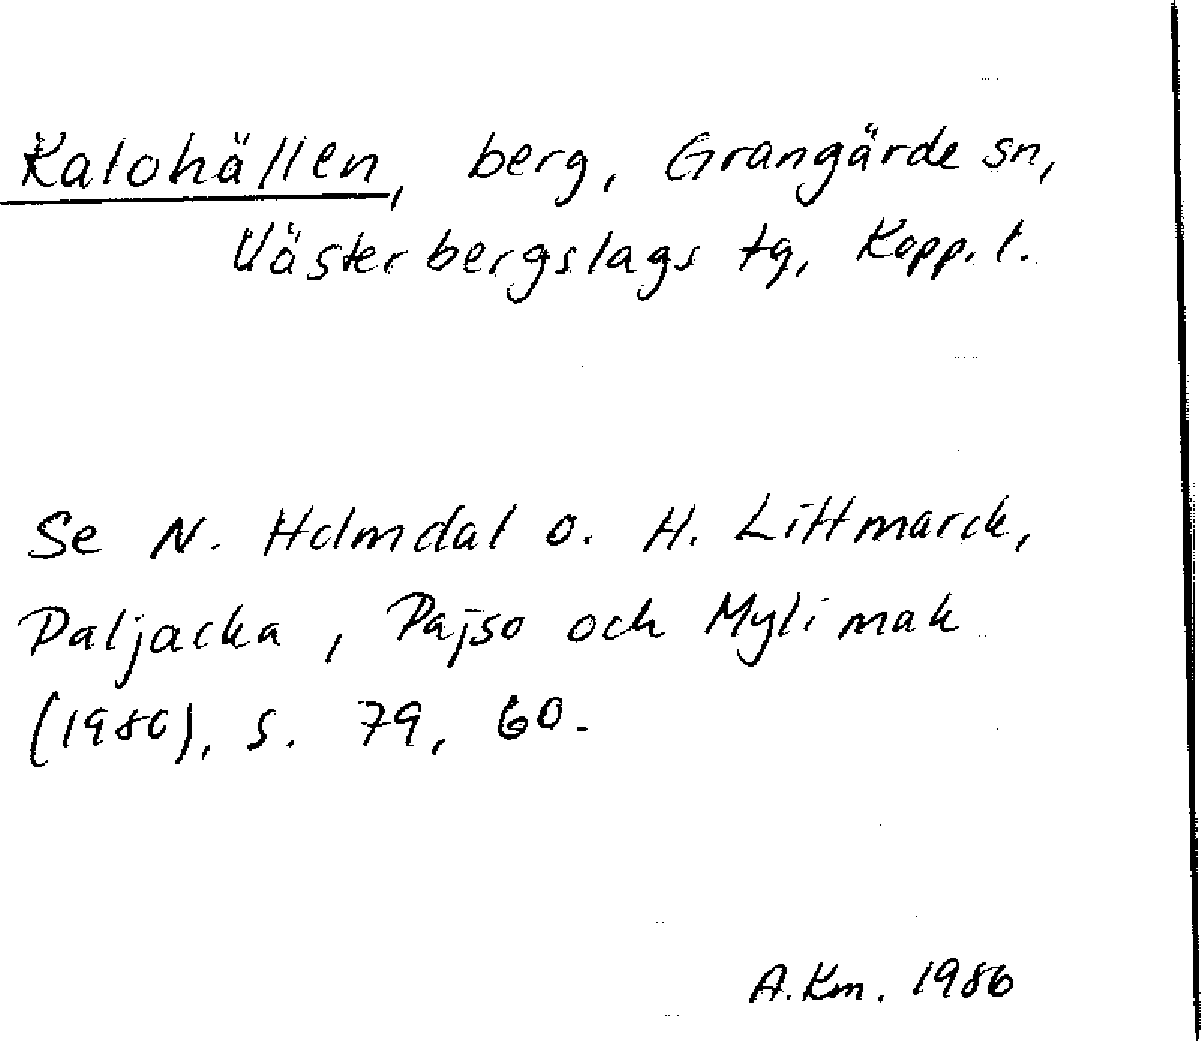 Kalohällen, berg, Grangärde sn,
Västerbergslags tg, Kopp. l.
Se N. Holmdal o. H. Littmarck,
Paljacka, Pajso och Mylimak
(1980), s. 79, 60.
A.Km. 1986